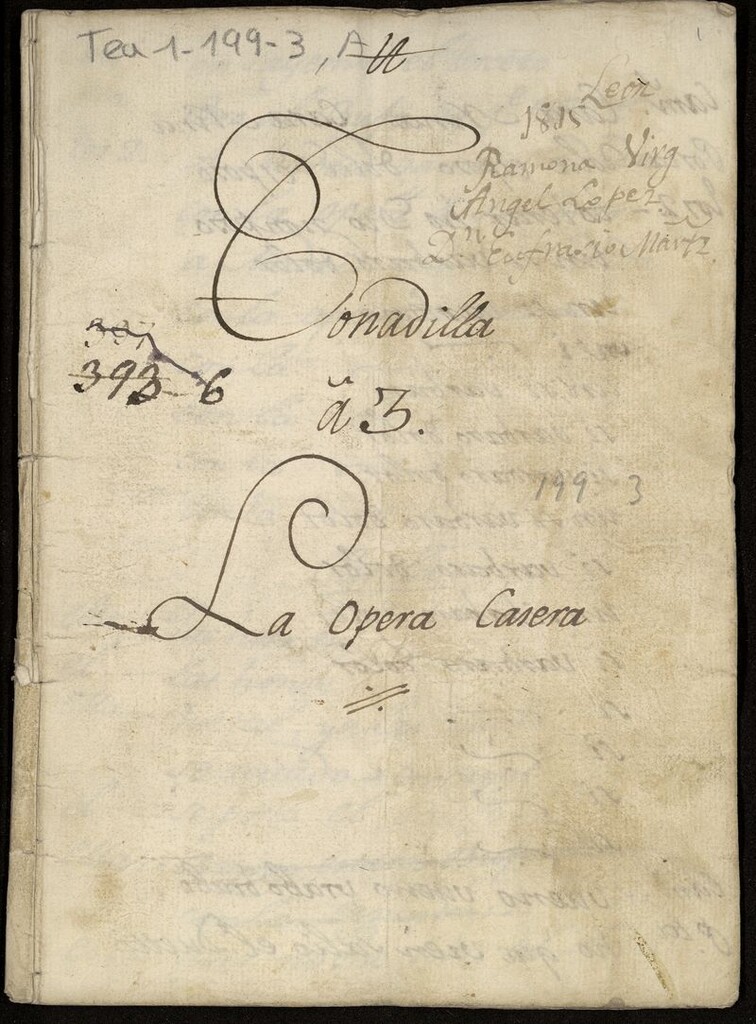 Tea 1-199-3, A
Leon
1815
Ramona Virg
Angel Lopez
Dn. Eofrasio Martz.
Tonadilla
393 6
â 3.
199-3
La Opera Casera